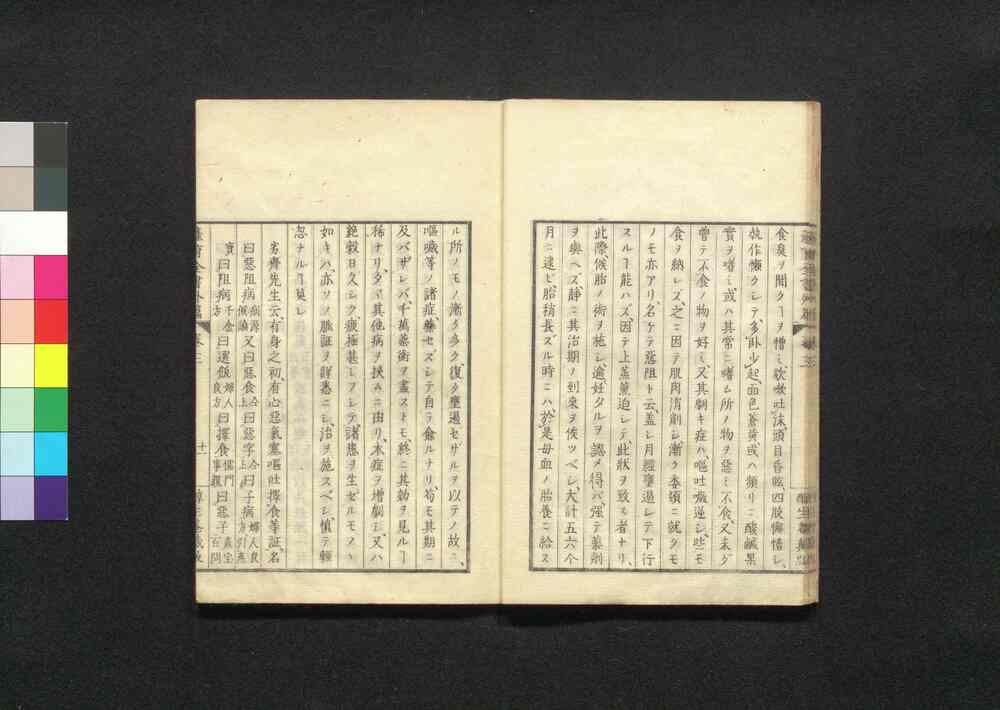 食臭ヲ聞クヿヲ憎ミ、欬嗽吐沫、頭目昏眩、四肢懈惰シ、
執作懶クシテ、多臥少起、面色蒼黄、或ハ頻リニ酸鹹果
實ヲ嗜ミ、或ハ其常ニ嗜ム所ノ物ヲ惡ミ不食、又未ダ
曾テ不食ノ物ヲ好ミ、又其劇キ症ハ、嘔吐噦逆シ、些モ
食ヲ納レズ、之ニ因テ肌肉消削シ、漸ク委頓ニ就クモ
ノモ亦アリ、名ケテ惡阻ト云、蓋シ月經壅遏シテ下行
スルヿ能ハズ、因テ上蒸薫迫シテ、此狀ヲ致ス者ナリ、
此際、候胎ノ術ヲ施シ、適、妊タルヲ認メ得バ、强テ藥劑
ヲ與ヘズ、靜ニ其治期ノ到來ヲ俟ツベシ、大計五六个
月ニ逮ビ、胎稍長ズル時ニハ、於是母血ノ胎養ニ給ス
ル所ノモノ漸ク多ク、復タ壅遏セザルヲ以テノ故ニ、
嘔噦等ノ諸症、藥セズシテ自ラ愈ルナリ、苟モ其期ニ
及バザレバ、千萬藥術ヲ盡ストモ、終ニ其効ヲ見ルヿ
稀ナリ、タヾ其他病ヲ挾ムニ由リ、本症ヲ増劇シ、又ハ
絶穀日久シク、疲極甚シフシテ、諸患ヲ生ゼルモノヽ
如キハ、亦ソノ脈證ヲ詳悉ニシ、治ヲ施スベシ、愼テ輕
忽ナルヿ莫レ
劣齋先生云、有身之初、有心惡氣塞嘔吐擇食等証、名
曰惡阻病病源候論又曰惡食仝上曰惡字仝上曰子病婦人良方引產
寶曰阻病千金方曰選飯婦人良方曰擇食儒門事親曰惡子產宝百問
卷三
十一